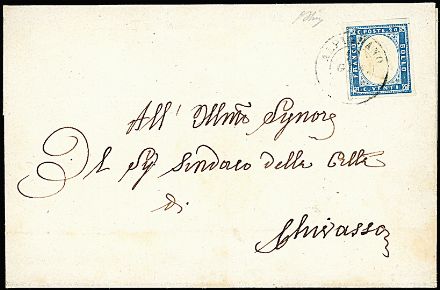 C. POSTE 20
FRANCO
BOLLO
C. VENTI
All' Illmo Signore
Il Sig Sindaco della Città
di
Chivasso